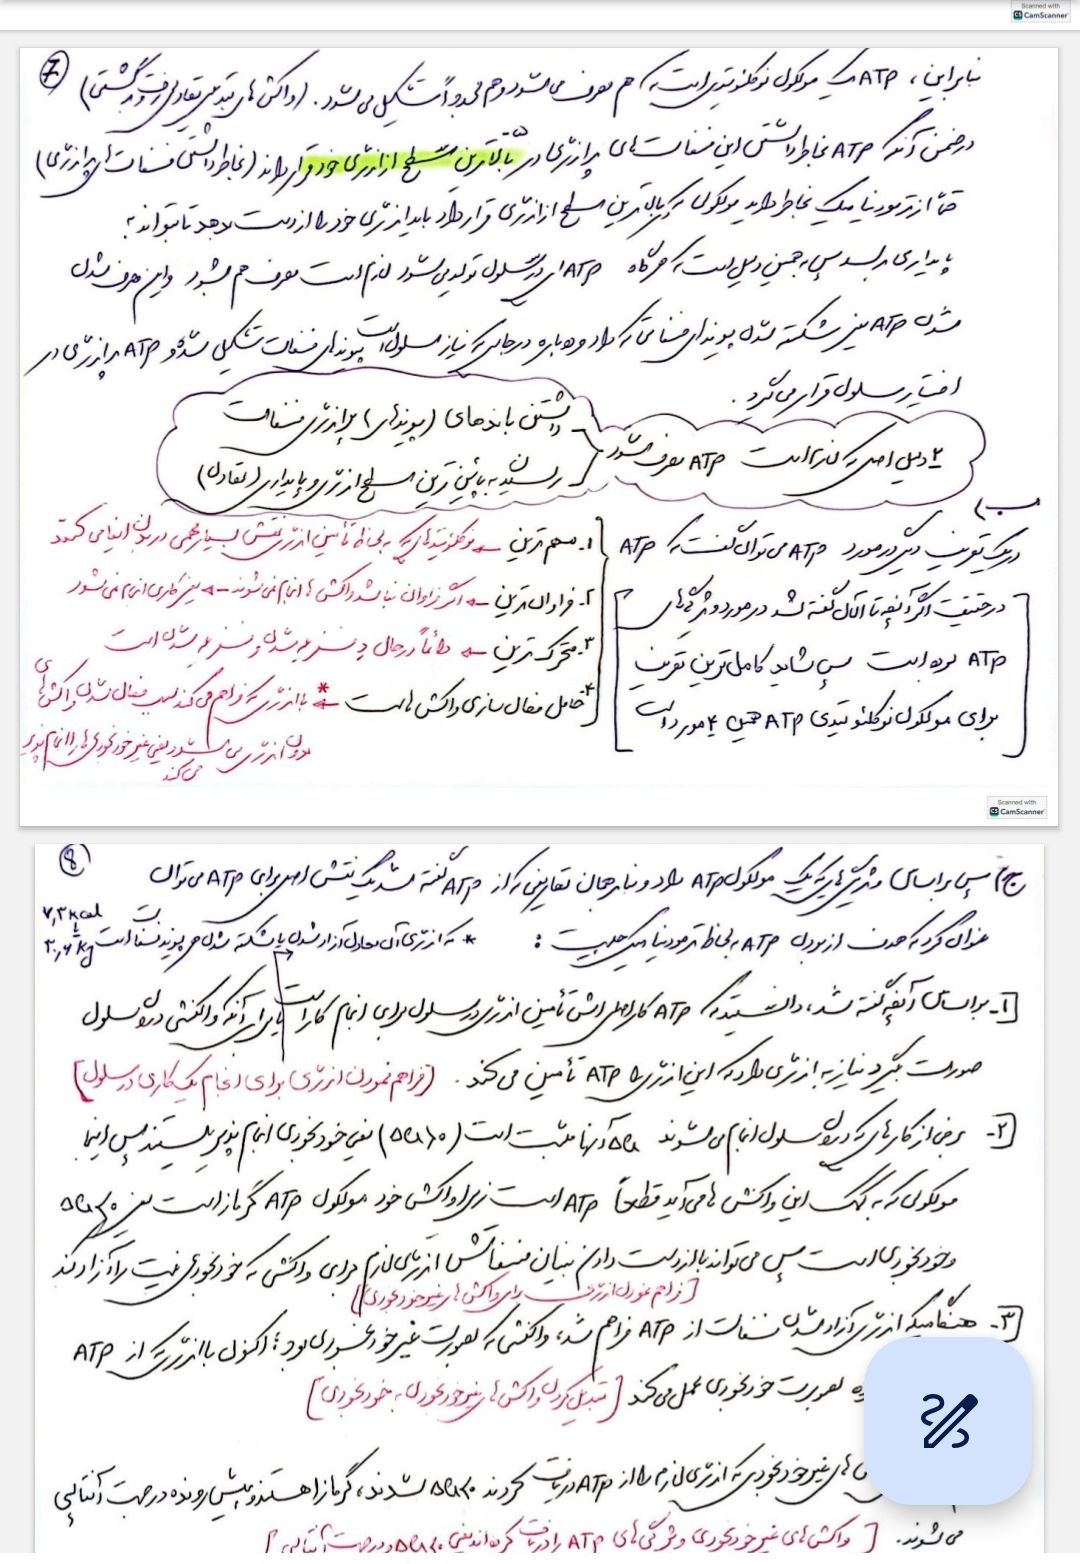 Scanned with
CamScanner
7
بنابراین، ATP یک مولکول نوکلئوتیدی است که هم مصرف می‌شود و هم مجدداً تشکیل می‌شود. (واکنش‌های تبدیلی تعادلی رفت و برگشتی)
در ضمن آنکه ATP بخاطر داشتن این فسفات‌های پرانرژی در بالاترین سطح از انرژی خود قرار دارد (بخاطر داشتن فسفات‌های پرانرژی)
از ترمودینامیک بخاطر دارید مولکولی که در بالاترین سطح از انرژی قرار دارد باید انرژی خود را از دست بدهد تا بتواند به
پایداری برسد پس به همین دلیل است که هرگاه ATP ای در سلول تولید می‌شود لازم است مصرف هم بشود و این مصرف شدن
شدن ATP یعنی شکسته شدن پیوندهای فسفاتی که دارد و دوباره در جایی که نیاز سلول است پیوندهای فسفات تشکیل شده و ATP پرانرژی در
اختیار سلول قرار می‌گیرد.
۲ دلیل اصلی که ATP مصرف می‌شود
داشتن باندهای (پیوندهای) پرانرژی فسفات
رسیدن به پائین‌ترین سطح انرژی و پایداری (تعادل)
ب)
در یک تعریف دیگر در مورد ATP می‌توان گفت که ATP
۱. مهم‌ترین ← نوکلئوتیدهایی که به لحاظ تأمین انرژی نقش بسیار مهمی در بدن ایفا می‌کنند
۲. فراوان‌ترین ← اگر فراوان نباشد واکنش‌ها انجام نمی‌شوند ← یعنی کاری انجام نمی‌شود
۳. محرک‌ترین ← دائماً در حال دفسفریله شدن و فسفریله شدن است
۴. عامل فعال‌سازی واکنش‌هاست ← * با انرژی که فراهم می‌کند سبب فعال شدن واکنش‌های
بدون انرژی می‌شود یعنی غیرخودبخودی‌ها را انجام‌پذیر
می‌کند
در حقیقت اگر آنچه تا الان گفته شد در مورد ویژگی‌های
ATP بوده است پس شاید کامل‌ترین تعریف
برای مولکول نوکلئوتیدی ATP همین ۴ مورد است
Scanned with
CamScanner
8
ج) پس براساس ویژگی‌هایی که یک مولکول ATP دارد و بنابر همان تعاریفی که از ATP گفته شد یک نقش اصلی برای ATP می‌توان
عنوان کرد که هدف از بودن ATP به لحاظ ترمودینامیک چیست:
* که انرژی آن معادل آزاد شدن یا شکسته شدن هر پیوند فسفات است
۷,۳ kcal
۱- براساس آنچه گفته شد، دانستید که ATP کار اصلی‌اش تأمین انرژی در سلول برای انجام کار است یا برای آنکه واکنشی در سلول
صورت بگیرد نیاز به انرژی دارد که این انرژی را ATP تأمین می‌کند. [فراهم نمودن انرژی برای انجام یک کاری در سلول]
۲- برخی از کارهایی که در سلول انجام می‌شوند ΔG آنها مثبت است (ΔG>0) یعنی خودبخودی انجام‌پذیر نیستند پس اینجا
مولکولی که به کمک این واکنش‌ها می‌آید قطعاً ATP است زیرا واکنش خود مولکول ATP گرمازاست یعنی ΔG<0
و خودبخودی است پس می‌تواند با از دست دادن بنیان فسفاتش انرژی لازم برای واکنشی که خودبخودی نیست را آزاد کند
[فراهم نمودن انرژی برای واکنش‌های غیرخودبخودی]
۳- هنگامیکه انرژی آزاد شدن فسفات از ATP فراهم شد، واکنشی که بصورت غیرخودبخودی بود؛ اکنون با انرژی که از ATP
بصورت خودبخودی عمل می‌کند [تبدیل کردن واکنش‌های غیرخودبخودی به خودبخودی]
های غیرخودبخودی که انرژی لازم را از ATP دریافت کردند ΔG<0 شدند، گرمازا هستند و پیش‌رونده در جهت آنتالپی
می‌شوند. [واکنش‌های غیرخودبخودی ویژگی‌های ATP را دریافت کرده‌اند یعنی ΔG<0 و در جهت آنتالپی]